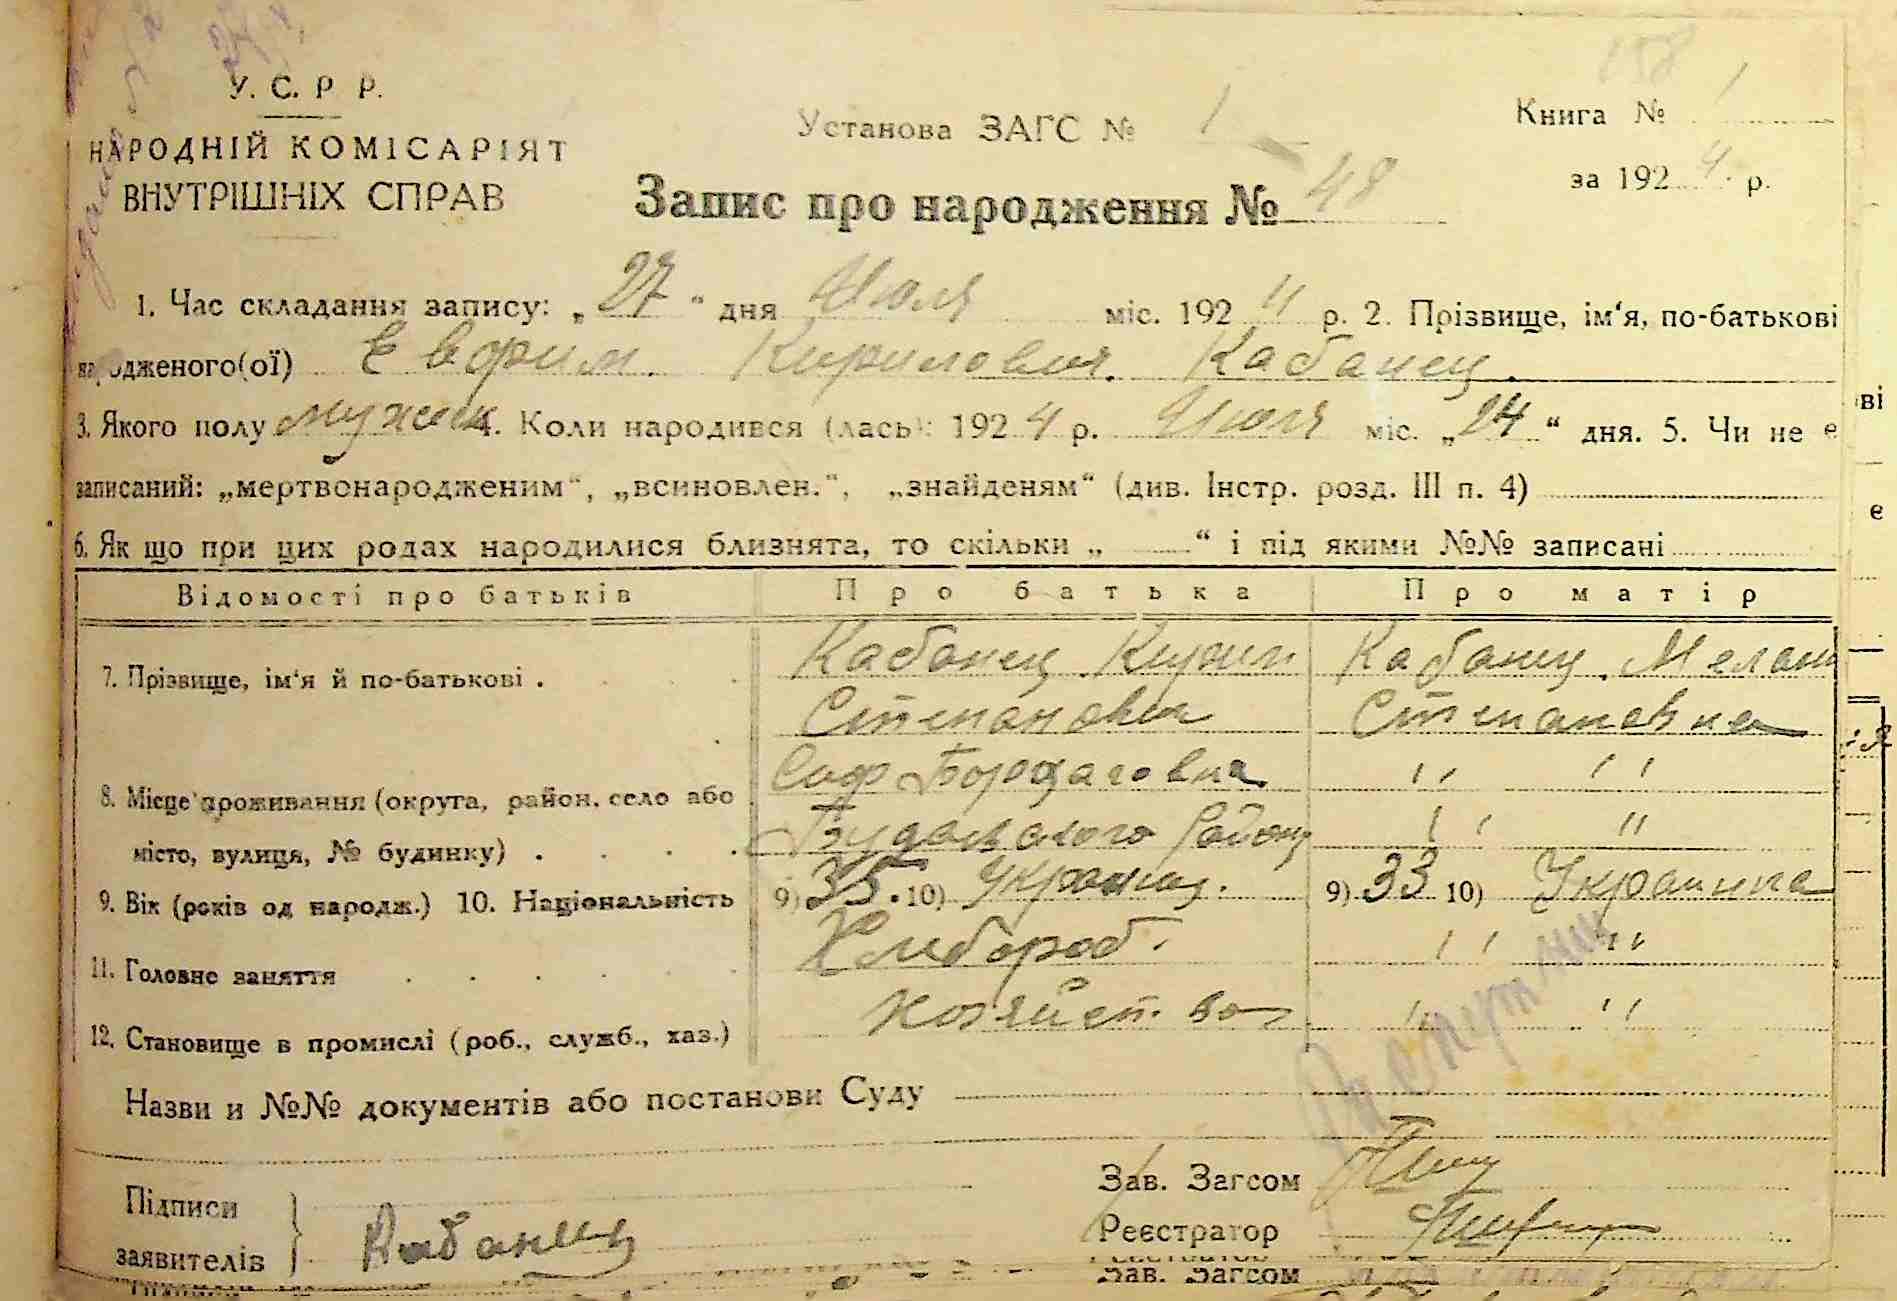 158
У. С. Р Р.
НАРОДНІЙ КОМІСАРІЯТ
ВНУТРІШНІХ СПРАВ
Установа ЗАГС № 1
Книга № 1
за 1924 р.
Запис про народження № 48
1. Час складання запису: „27" дня Июля міс. 1924 р. 2. Прізвище, ім'я, по-батькові
народженого(ої) Евфрим. Кирилович. Кабанец.
3. Якого полу мужск 4. Коли народився (лась): 1924 р. Июля міс. „24" дня. 5. Чи не є
записаний: „мертвонародженим", „всиновлен.", „знайденям" (див. Інстр. розд. III п. 4)
6. Як що при цих родах народилися близнята, то скільки „ " і під якими №№ записані
Відомості про батьків Про батька Про матір
7. Прізвище, ім'я й по-батькові . Кабанец Кирил Кабанец Мелан
Степанович Степановна
8. Місце проживання (округа, район, село або Бородаговка " "
місто, вулиця, № будинку) . . . . района " "
9. Вік (років од народж.) 10. Національність 9) 35. 10) Украинец. 9) 33 10) Украинка
11. Головне заняття Хлебороб. " "
12. Становище в промислі (роб., служб., хаз.) Хозяйст. во " "
Назви и №№ документів або постанови Суду
Підписи
заявителів Кабанец
Зав. Загсом
Реєстратор
Зав. Загсом